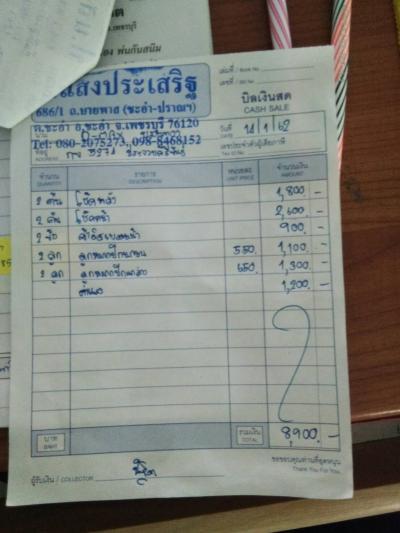 แสงประเสริฐ
686/1 ถ.บายพาส (ชะอำ-ปราณฯ)
ต.ชะอำ อ.ชะอำ จ.เพชรบุรี 76120
Tel: 080-2075273, 098-8468152
เล่มที่ / Book No.
เลขที่ / Bill No.
บิลเงินสด
CASH SALE
วันที่ DATE 14/1/62
ที่อยู่ ADDRESS
เลขประจำตัวผู้เสียภาษี
Tax ID No.
จำนวน QUANTITY รายการ DESCRIPTION หน่วยละ UNIT PRICE จำนวนเงิน AMOUNT
2 ต้น โช๊คหลัง 1,800.-
2 ต้น โช๊คหน้า 2,600.-
2 900.-
2 ลูก ลูกหมากปีกนกบน 550. 1,100.-
2 ลูก ลูกหมากปีกนกล่าง 650. 1,300.-
1,200.-
บาท BAHT รวมเงิน TOTAL 8900.-
ผู้รับเงิน / COLLECTOR
ขอขอบคุณท่านที่อุดหนุน
Thank You For You.